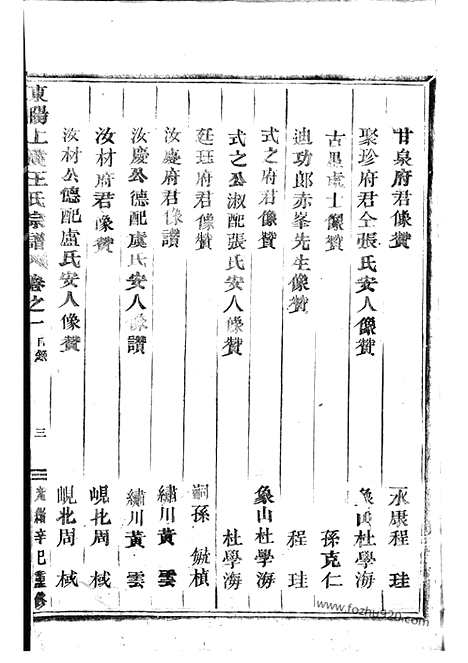 甘泉府君像贊 永康程 珪
聚珍府君仝張氏安人像贊 象山杜學海
古愚處士像贊 孫克仁
迪功郎赤峯先生像贊 程 珪
式之府君像贊 象山杜學海
式之公淑配張氏安人像贊 杜學海
廷珏府君像贊 嗣孫 毓楨
汝慶府君像讚 繡川黃 雲
汝慶公德配虞氏安人像讚 繡川黃 雲
汝材府君像贊 峴北周 棫
汝材公德配盧氏安人像贊 峴北周 棫
東陽上 王氏宗譜 卷之一 目錄 三 光緒辛巳重修
www.fozhu920.com